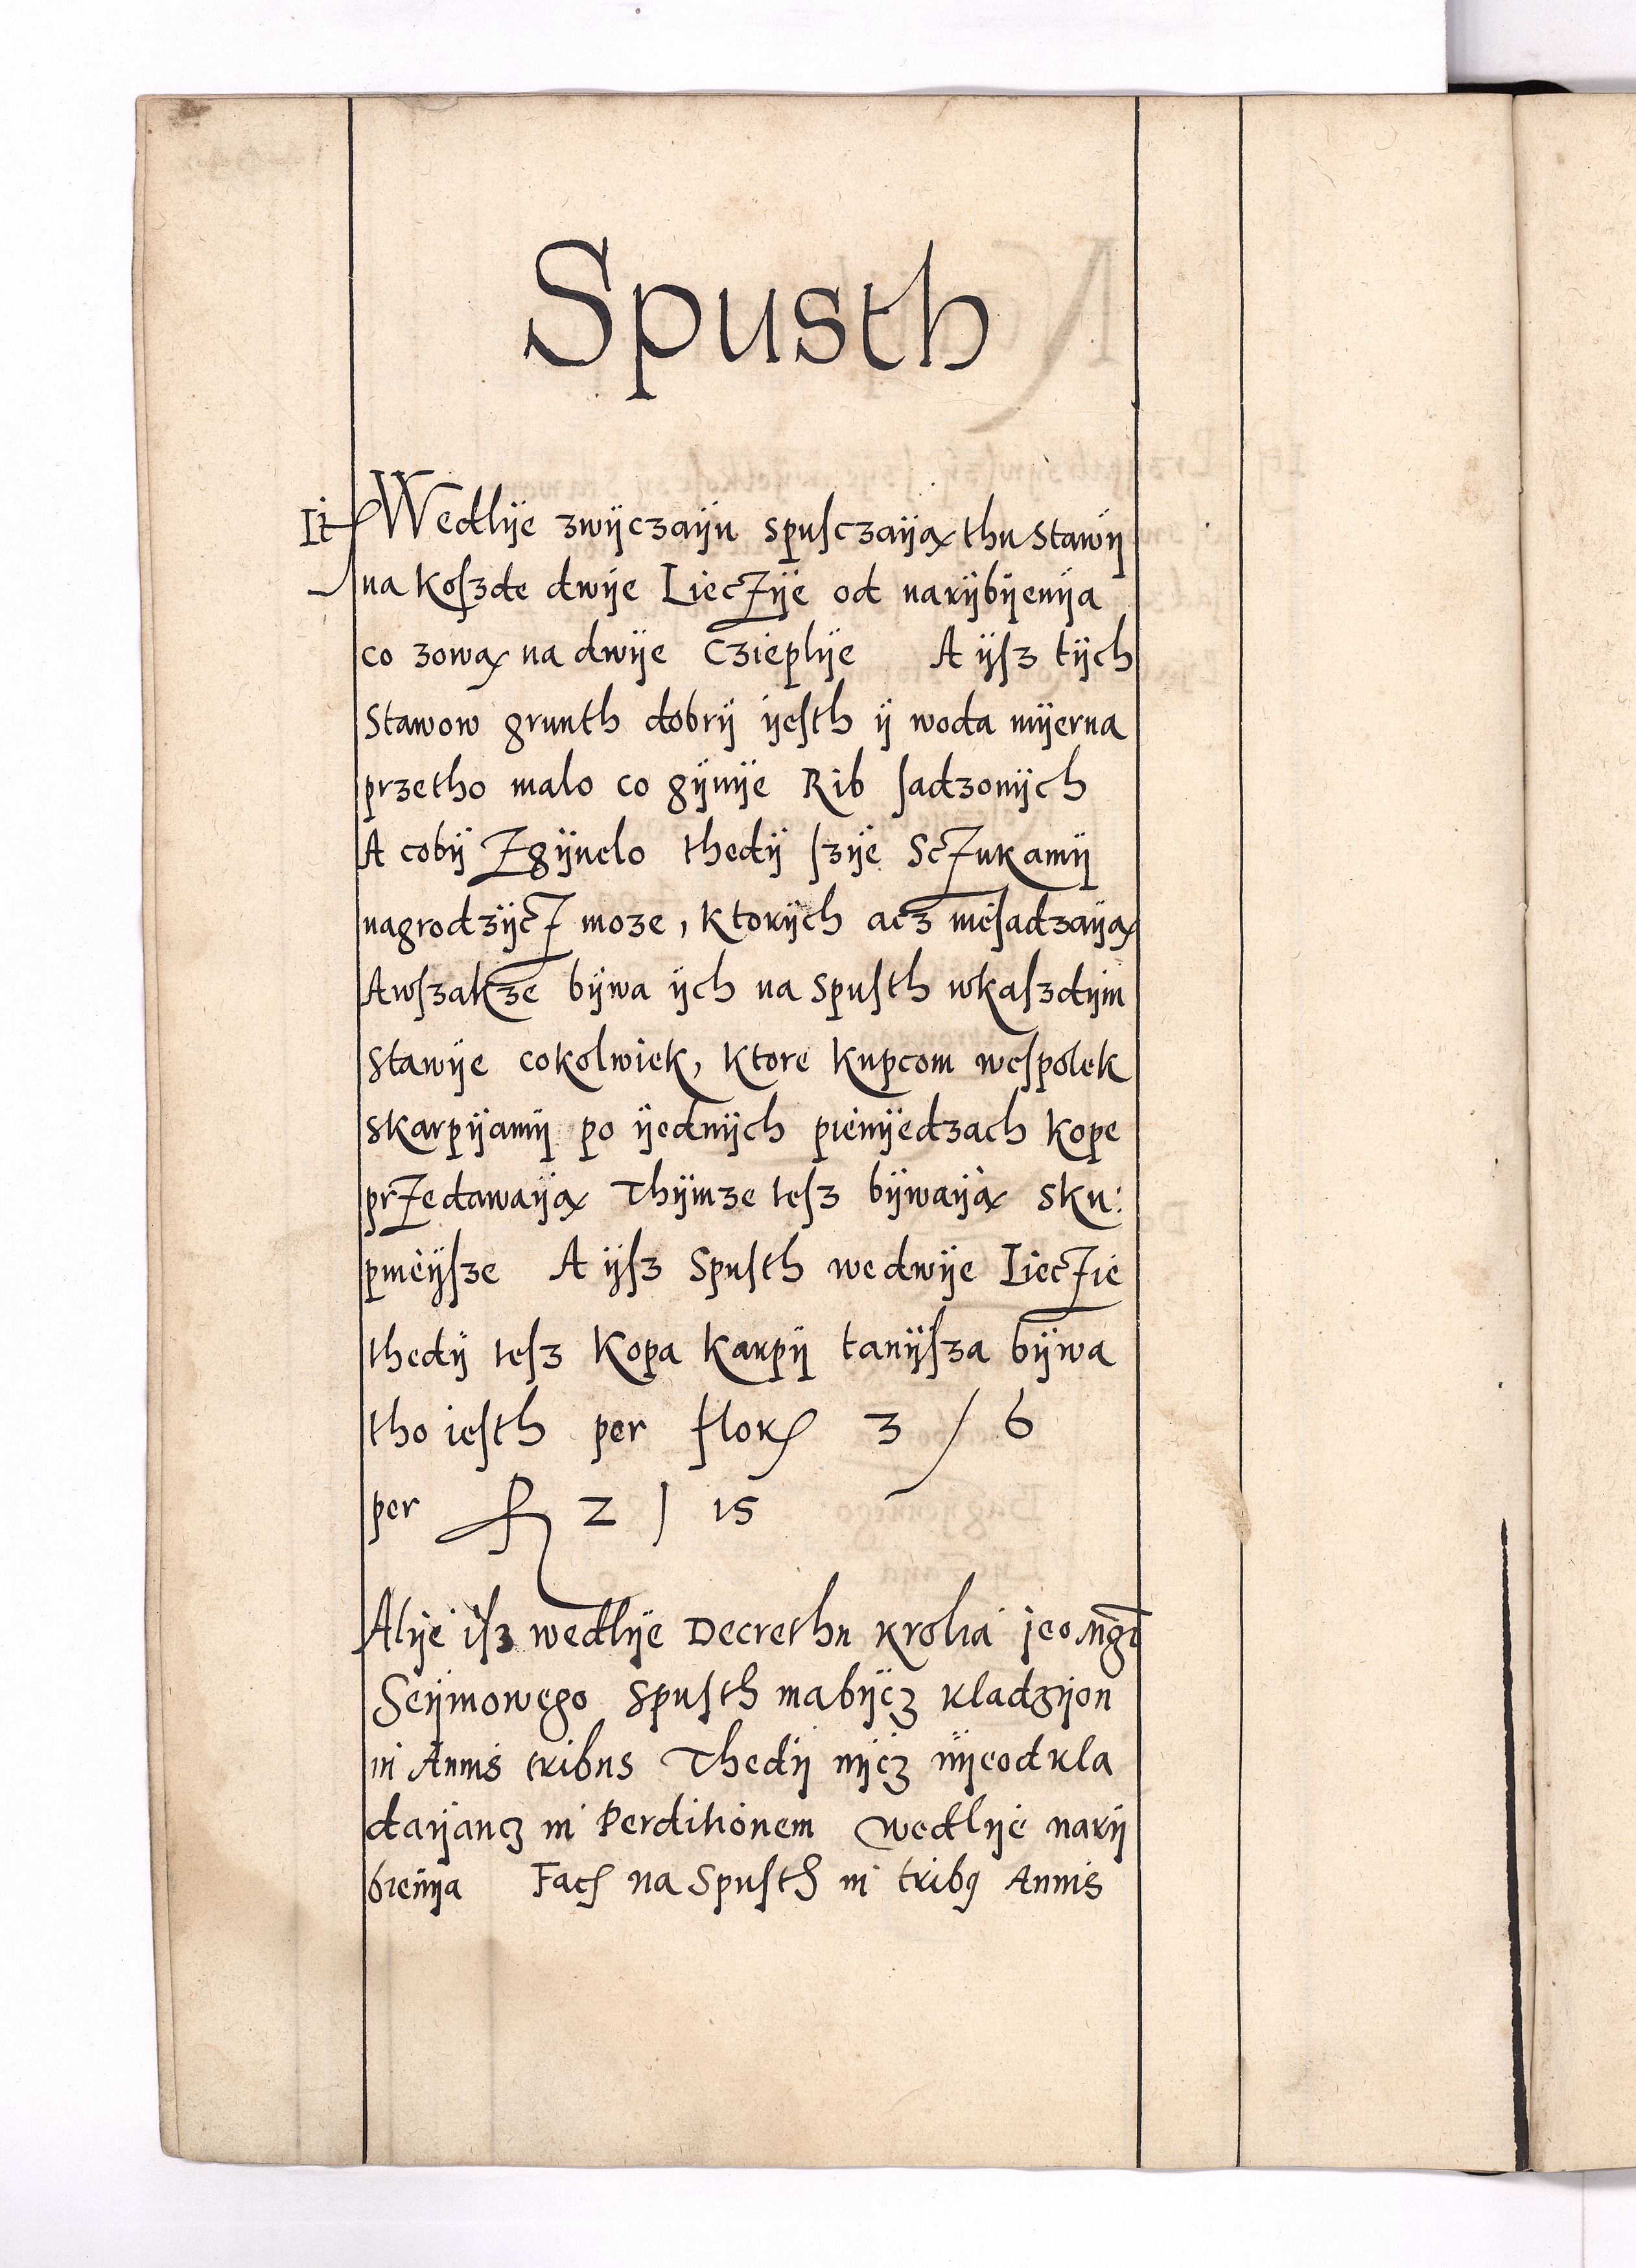 Spusth
It Wedlÿe zwÿczaÿu spusczaÿą thu Stawÿ
na koszde dwÿe Lieczÿe od narÿbÿenÿa
co zową na dwÿe Czieplÿe A ÿsz tÿch
Stawow grunth dobrÿ ÿesth ÿ woda mÿerna
przetho malo co gÿnÿe Rib sadzonÿch
A cobÿ Zgÿnelo thedÿ szÿe Sczukamÿ
nagrodzÿcz moze, ktorÿch acz niesadzaÿą
Awszakze bÿwa ÿch na Spusth wkaszdÿm
Stawÿe cokolwiek, ktore kupcom wespolek
skarpÿamÿ po ÿednÿch pienÿedzach kope
przedawaÿą Thÿmze tesz bÿwaÿą sku:
pnieÿsze A ÿsz Spusth wedwÿe Lieczie
thedÿ tesz Kopa karpÿ tanÿsza bÿwa
tho iesth per flor 3 / 6
per fl 2 / 15
Alÿe isz wedlÿe Decrethu krolia jeo mgi
Seÿmowego Spusth mabÿcz kladzÿon
in Annis tribus Thedÿ nÿcz nÿeodkla
daÿancz in Perditionem wedlÿe narÿ
bienÿa Fach na Spusth in tribq Annis